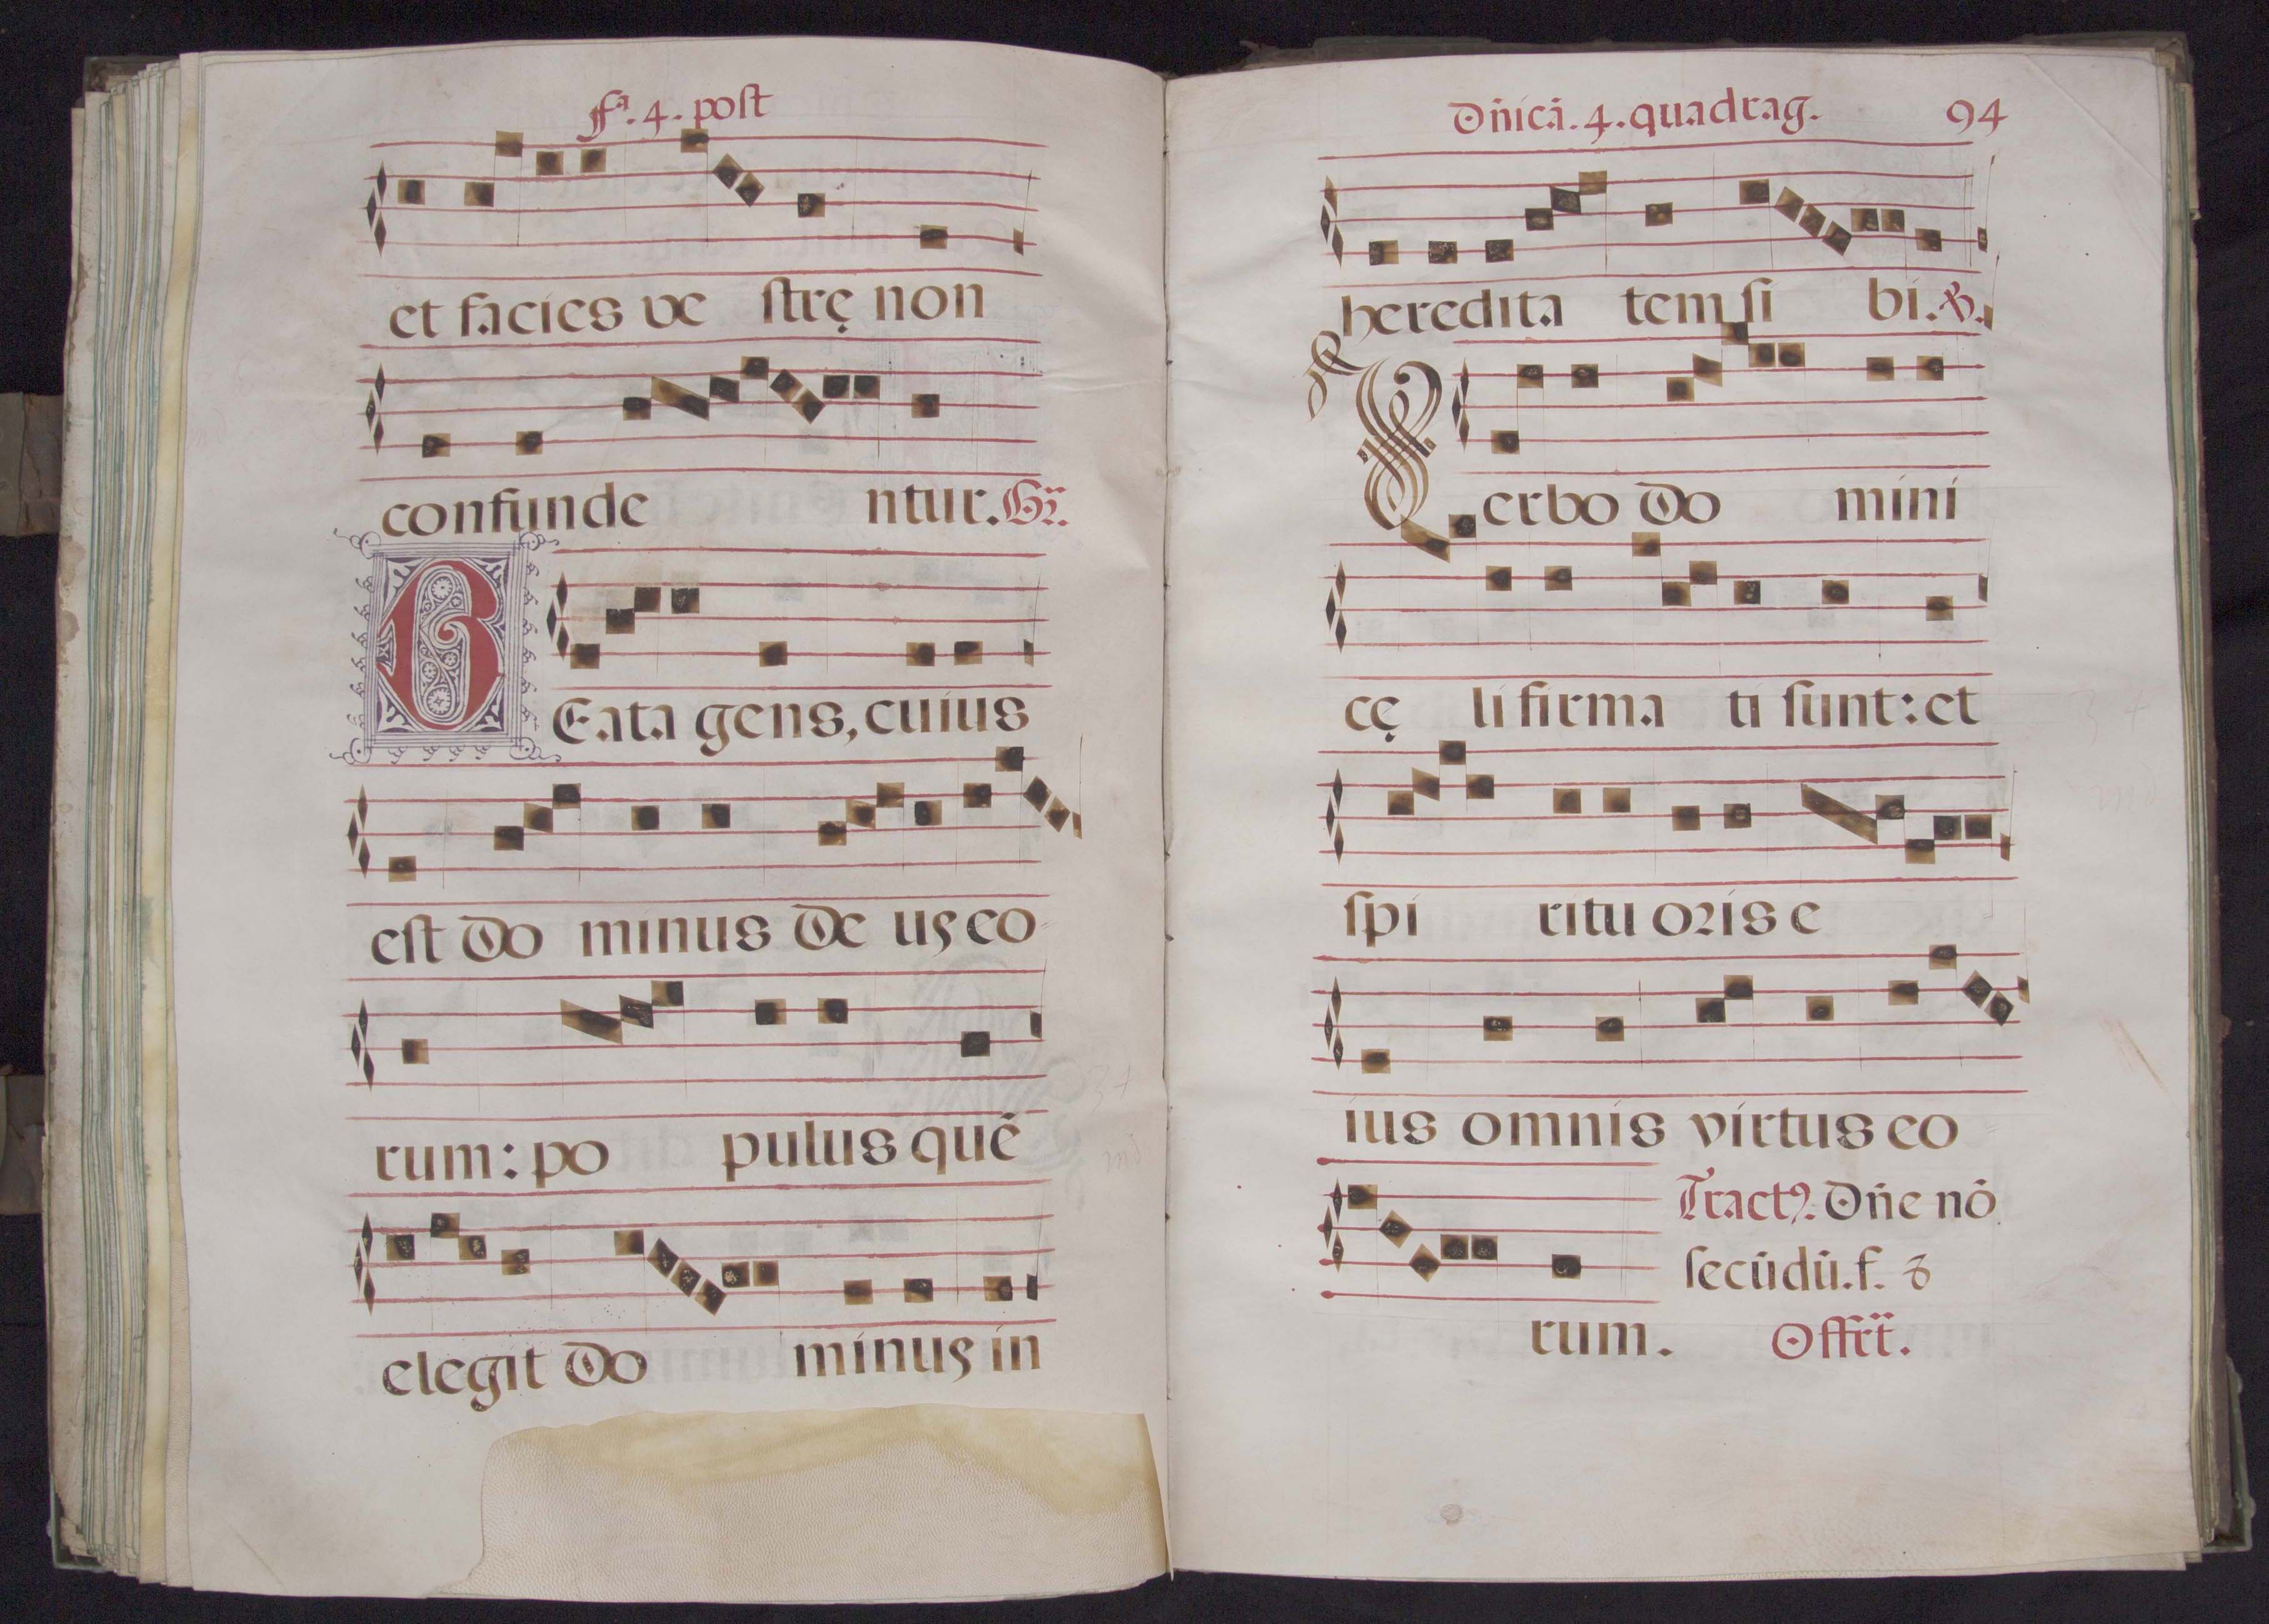 fª. 4. post
et facies ve ſtrę non
confunde ntur. Gr̄.
BEata gens, cuius
eſt Do minus De us eo
rum: po pulus quẽ
elegit Do minus in
Dn̄icā. 4. quadrag. 94
heredita tem ſi bi. ℣.
Verbo Do mini
cę li firma ti ſunt: et
ſpi ritu oꝛis e
ius omnis virtus eo
Tractꝰ. Dn̄e nō
ſecūdū. f. 8
rum. Offr̄t.